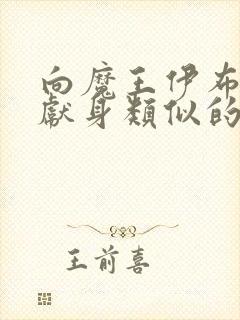 向魔王伊布
獻身類似的
王前喜